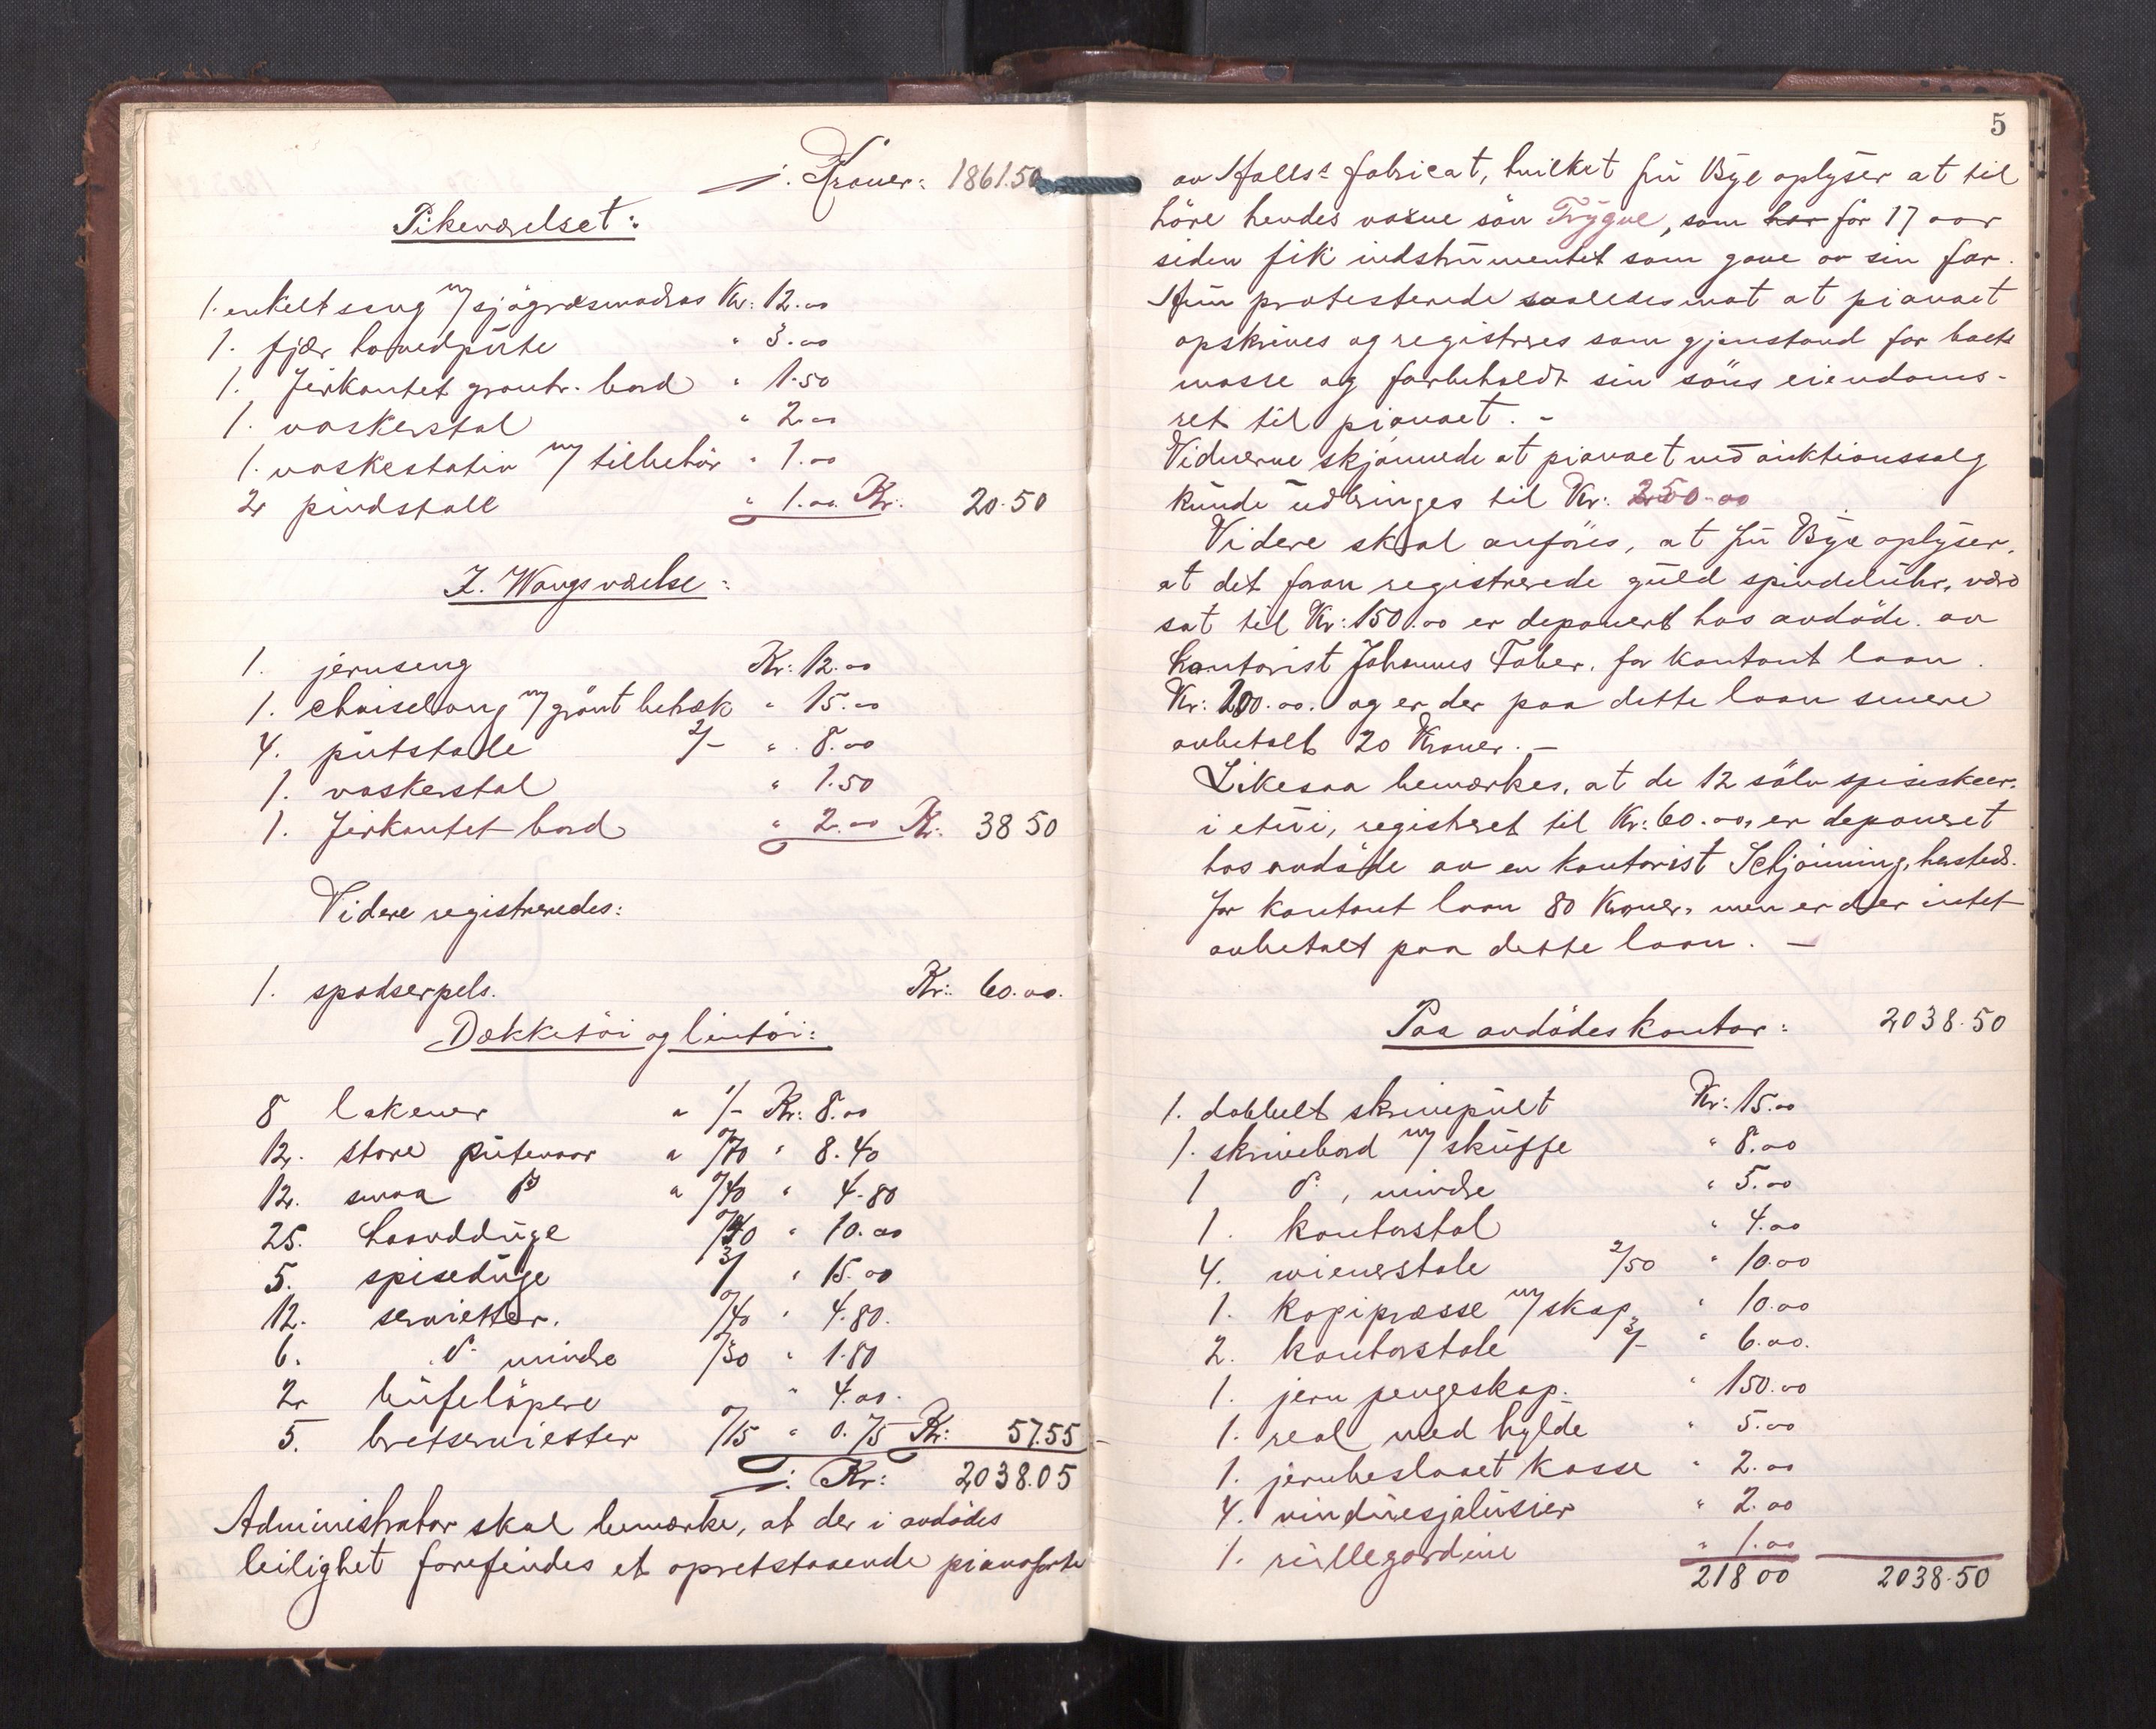 ./. Kroner: 1861.50
Pikeværelset:
1. enkelt seng m/ sjögræsmadras Kr: 12.00
1. fjær hovedpute " 3.00
1. firkantet grantr. bord " 1.50
1. vaskerstol " 2.00
1. vaskestativ m/ tilbehör " 1.00
2 pindstole " 1.00 Kr: 20.50
Z. Wangs værelse:
1. jernseng Kr: 12.00
1. chaiselong m/ grönt betræk " 15.00
4. putstole 2/- " 8.00
1. vaskerstol " 1.50
1. firkantet bord " 2.00 Kr: 38 50
Videre registreredes:
1. spadserpels. Kr: 60.00.
Dækketöi og lintöi:
8 lakener a 1/- Kr: 8.00
12. store putevaar a 0/70 " 8.40
12. smaa do a 0/40 " 4.80
25. haandduge 0/40 " 10.00
5. spiseduge 3/ " 15.00
12. servietter. 0/40 " 4.80.
6. do mindre 0/30 " 1.80
2 bufelöpere " 4.00.
5. bretservietter 0/15 " 0.75 Kr: 57.55
./. Kr: 2038.05
Administrator skal bemærke, at der i avdödes
leilighet forefindes et opretstaaende pianoforte
5
av Halls fabricat, hvilket fru Bye oplyser at til
höre hendes voxne sön Trygve, som har for 17 aar
siden fik indstrumentet som gave av sin far.
Hun protesterede saaledes mot at pianoet
opskrives og registreres som gjenstand for boets
masse og forbeholdt sin söns eiendoms-
ret til pianoet. -
Vidnerne skjönnede at pianoet ved auktionssalg
kunde udbringes til Kr: 250.00
Videre skal anföres, at fru Bye oplyser,
at det foran registrerede guld spindeluhr, værd
sat til Kr: 150.00 er deponert hos avdöde av
kontorist Johannes Faber, for kontant laan.
Kr: 200.00. og er der paa dette laan senere
avbetalt 20 Kroner. -
Likesaa bemærkes, at de 12 sölv spiseskeer.
i etui, registreret til Kr: 60.00, er deponeret
hos avdöde av en kontorist Schjönning, hersteds.
for kontant laan 80 Kroner, men er der intet
avbetalt paa dette laan. -
Paa avdödes kontor: 2038.50
1. dobbelt skrivepult Kr: 15.00
1. skrivebord m/ skuffe " 8.00
1 do, mindre " 5.00
1. kontorstol " 4.00
4. wienerstole 2/50 " 10.00
1. kopipresse m/ skap " 10.00
2. kontorstole 3/- " 6.00.
1. jern pengeskap. " 150.00
1. reol med hylde " 5.00
1. jernbeslaaet kasse " 2.00
4. vinduesjalusier " 2.00
1. rullegardine " 1.00
218 00 2038.50